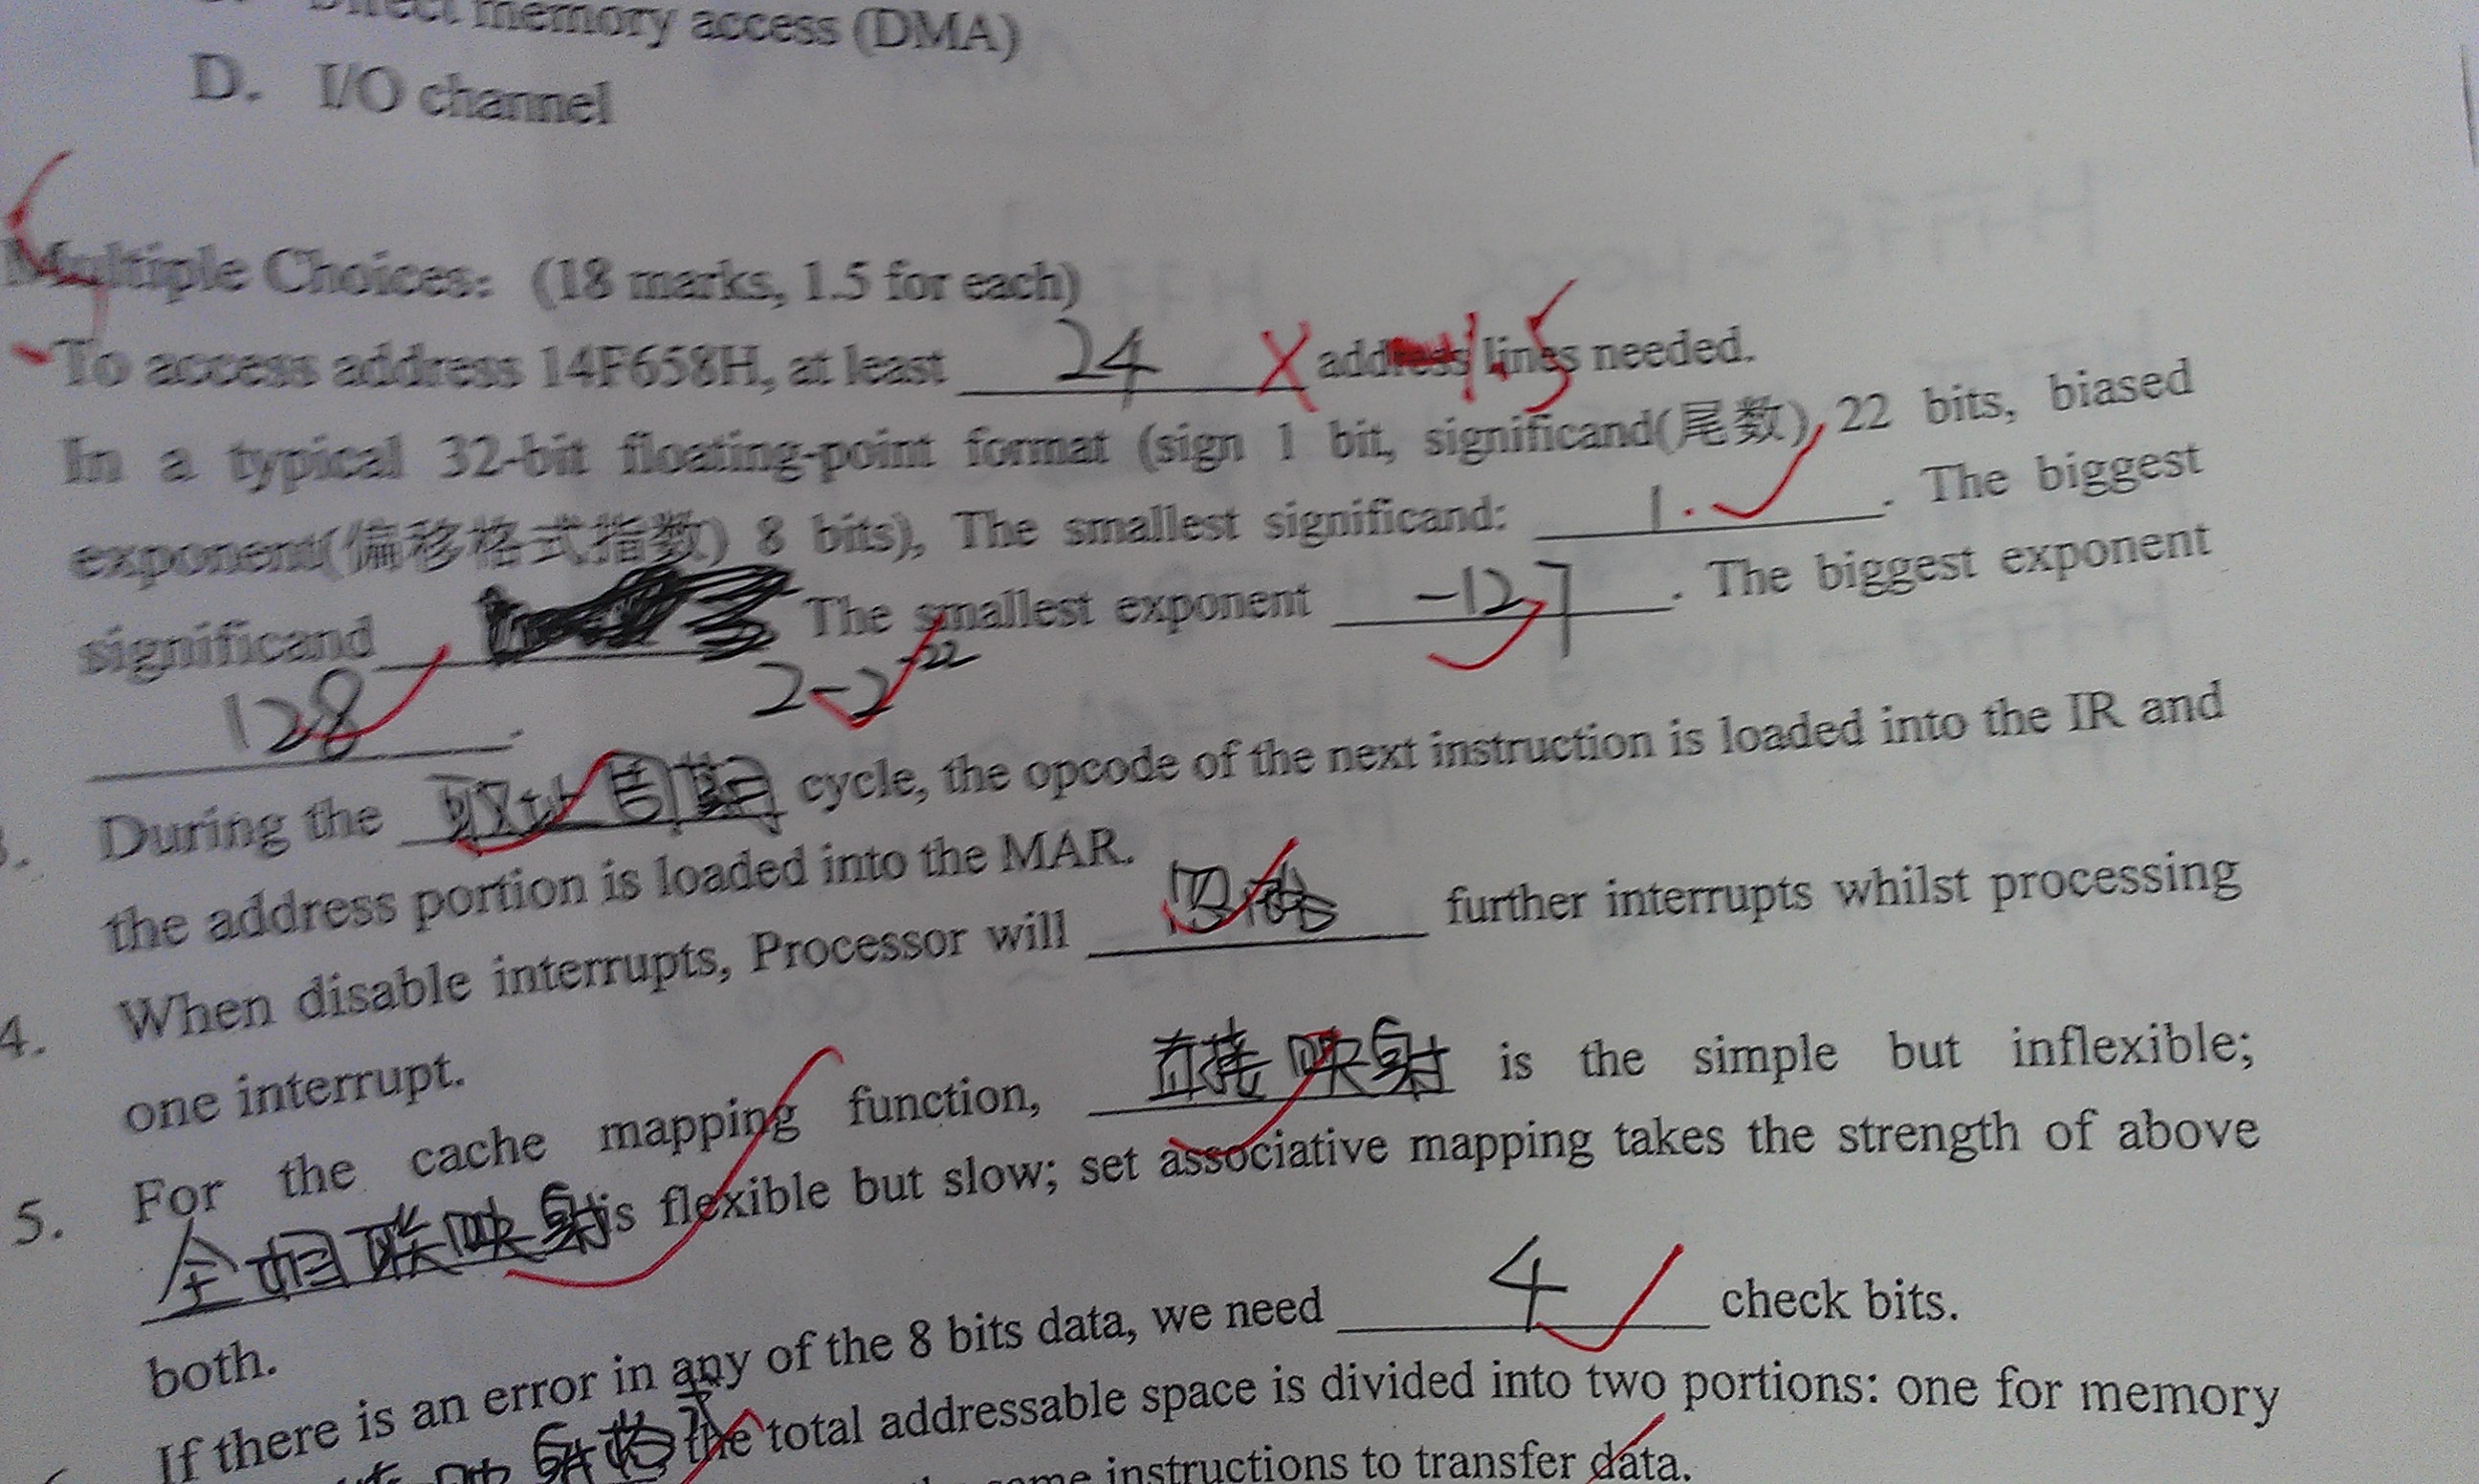 Direct memory access (DMA)
D. I/O channel
Multiple Choices: (18 marks, 1.5 for each)
To access address 14F658H, at least 24 address lines needed.
-1.5
In a typical 32-bit floating-point format (sign 1 bit, significand(尾数), 22 bits, biased
exponent(偏移格式指数) 8 bits), The smallest significand: 1. . The biggest
significand The smallest exponent -127 . The biggest exponent
2-2^-22
128 .
During the 取址周期 cycle, the opcode of the next instruction is loaded into the IR and
the address portion is loaded into the MAR.
4. When disable interrupts, Processor will 忽略 further interrupts whilst processing
one interrupt.
5. For the cache mapping function, 直接映射 is the simple but inflexible;
全相联映射 is flexible but slow; set associative mapping takes the strength of above
both.
If there is an error in any of the 8 bits data, we need 4 check bits.
the total addressable space is divided into two portions: one for memory
some instructions to transfer data.